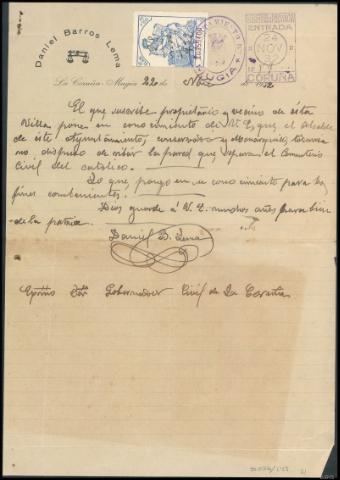 Daniel Barros Lema
ENTRADA
24 NOV 32
CORUÑA
MUGIA
La Coruña-Mugia 22 de Nbre de 1932
El que suscribe propietario y vecino de esta
Villa pone en conocimiento de V. E. que el Alcalde
de este Ayuntamiento, conservador y monarquico,
no dispuso de retirar la pared que separa el Cementerio
Civil del catolico.
Lo que pongo en su conocimiento para los
fines combenientes.
Dios guarde á V. E. muchos años para bien
de la patria.
Daniel B. Lema
Exmo Sor Gobernador Civil de La Coruña